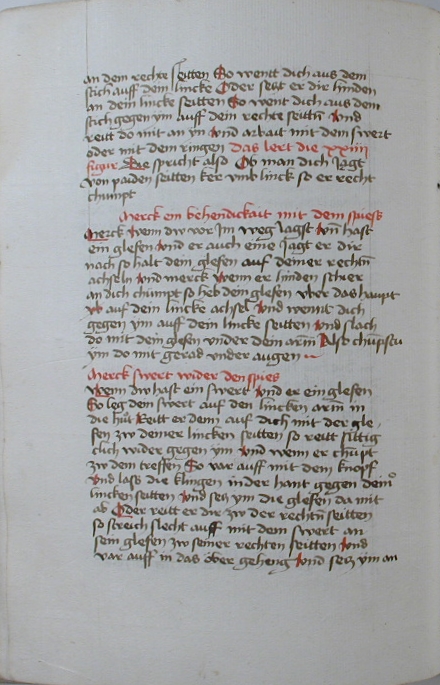 an dem rechte seitten So wentt dich aus dem
stich auff dem lincke Oder setzt er dir hinden
an dem lincke seitten So went dich aus dem
stich gegen ym auff dem rechte seittn Vnd
reitt do mit an yn vnd arbait mit dem swert
oder mit dem ringen das lert die xxiiii
figur Die spricht also Ob man dich Jagt
von paiden seitten ker vmb linck so er recht
chumpt
Merck ein behendickait mit dem spiess
Merck Wenn dw vor Jm weg Jagst vn hast
ein glefen vnd er auch eine Jagt er dir
nach so halt dein glefen auf deiner rechtn
achseln vnd merck wenn er hinden schier
an dich chumpt so heb dein glefen vber das haupt
auf dein lincke achsel vnd wennt dich
gegen ym auff dein lincke seitten vnd slach
do mit dein glefen vnder dein arm Also chumstu
ym do mit gerad vnder augen
Merck swert wider den spies
Wenn dw hast ein swert vnd er ein glefen
So leg dein swert auf den lincken arm in
die hut Reitt er denn auf dich mit der gle
fen zw deiner lincken seitten so reitt sittig
clich wider gegen ym vnd wenn er chupt
zw dem treffen So var auff mit dem knopf
vnd lass die klingen in der hant gegen dein
lincken seitten vnd setz ym die glefen da mit
ab Oder reitt er dir zw der rechtn seitten
so streich slecht auff mit dem swert an
sein glefen zw seiner rechten seitten vnd
var auff in das ober geheng vnd setz ym an